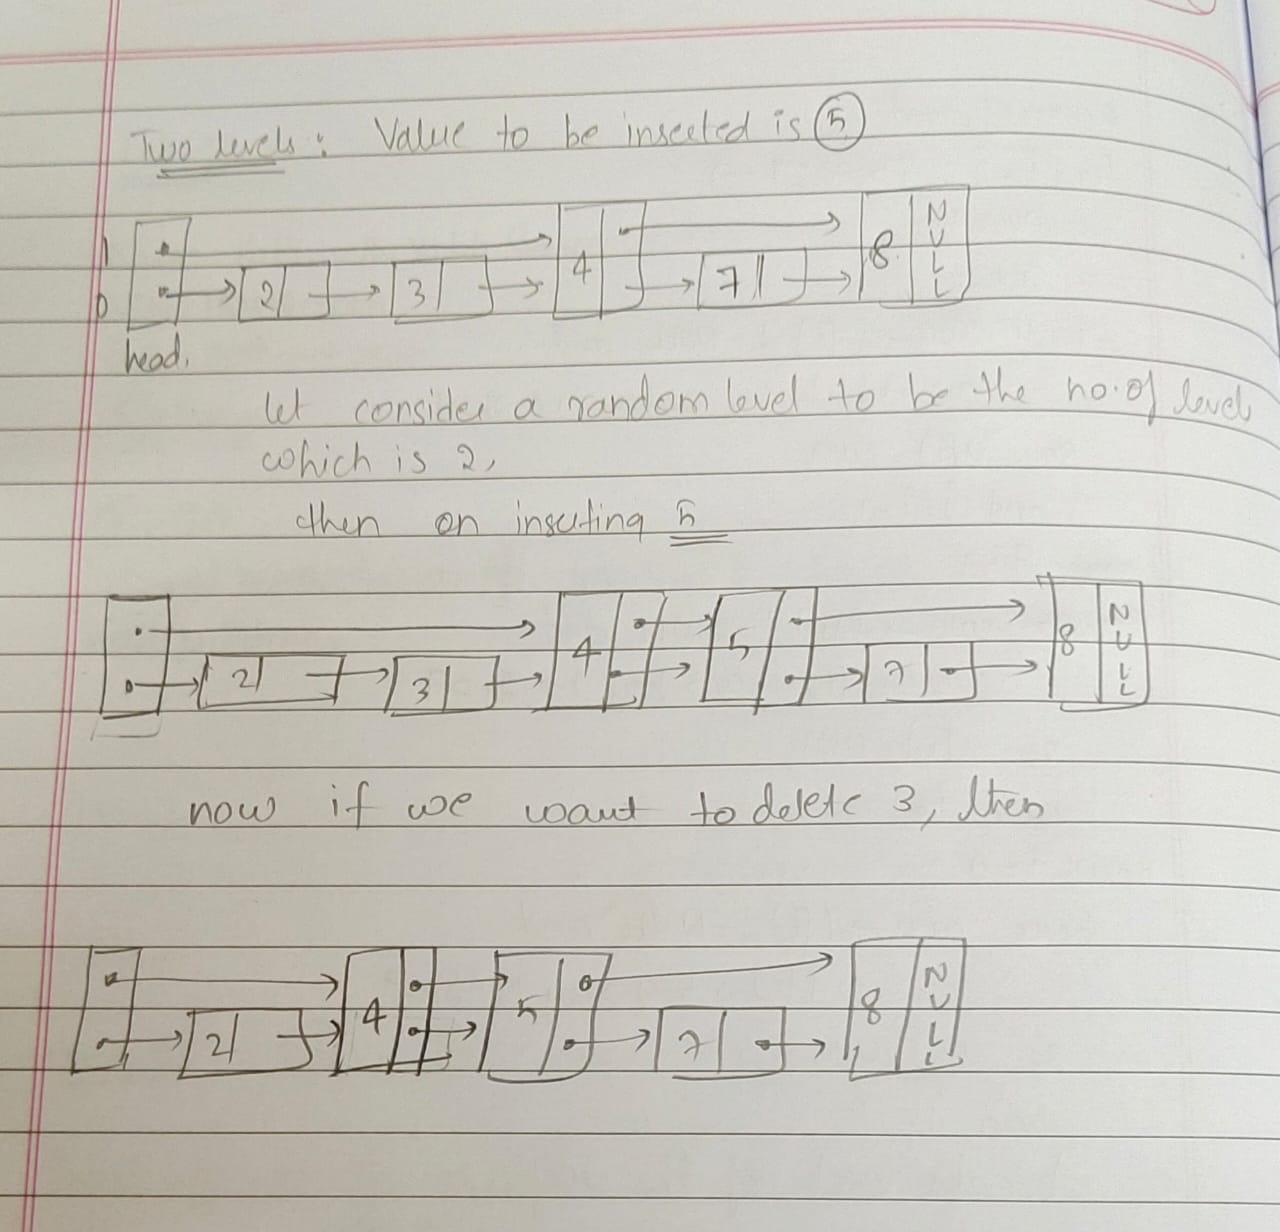 Two levels : Value to be inserted is 5
1 4 8 NULL
0 2 3 7
head.
let consider a random level to be the no. of level
which is 2,
then on inserting 5
4 5 8 NULL
2 3 7
now if we want to delete 3, then
4 5 8 NULL
2 7